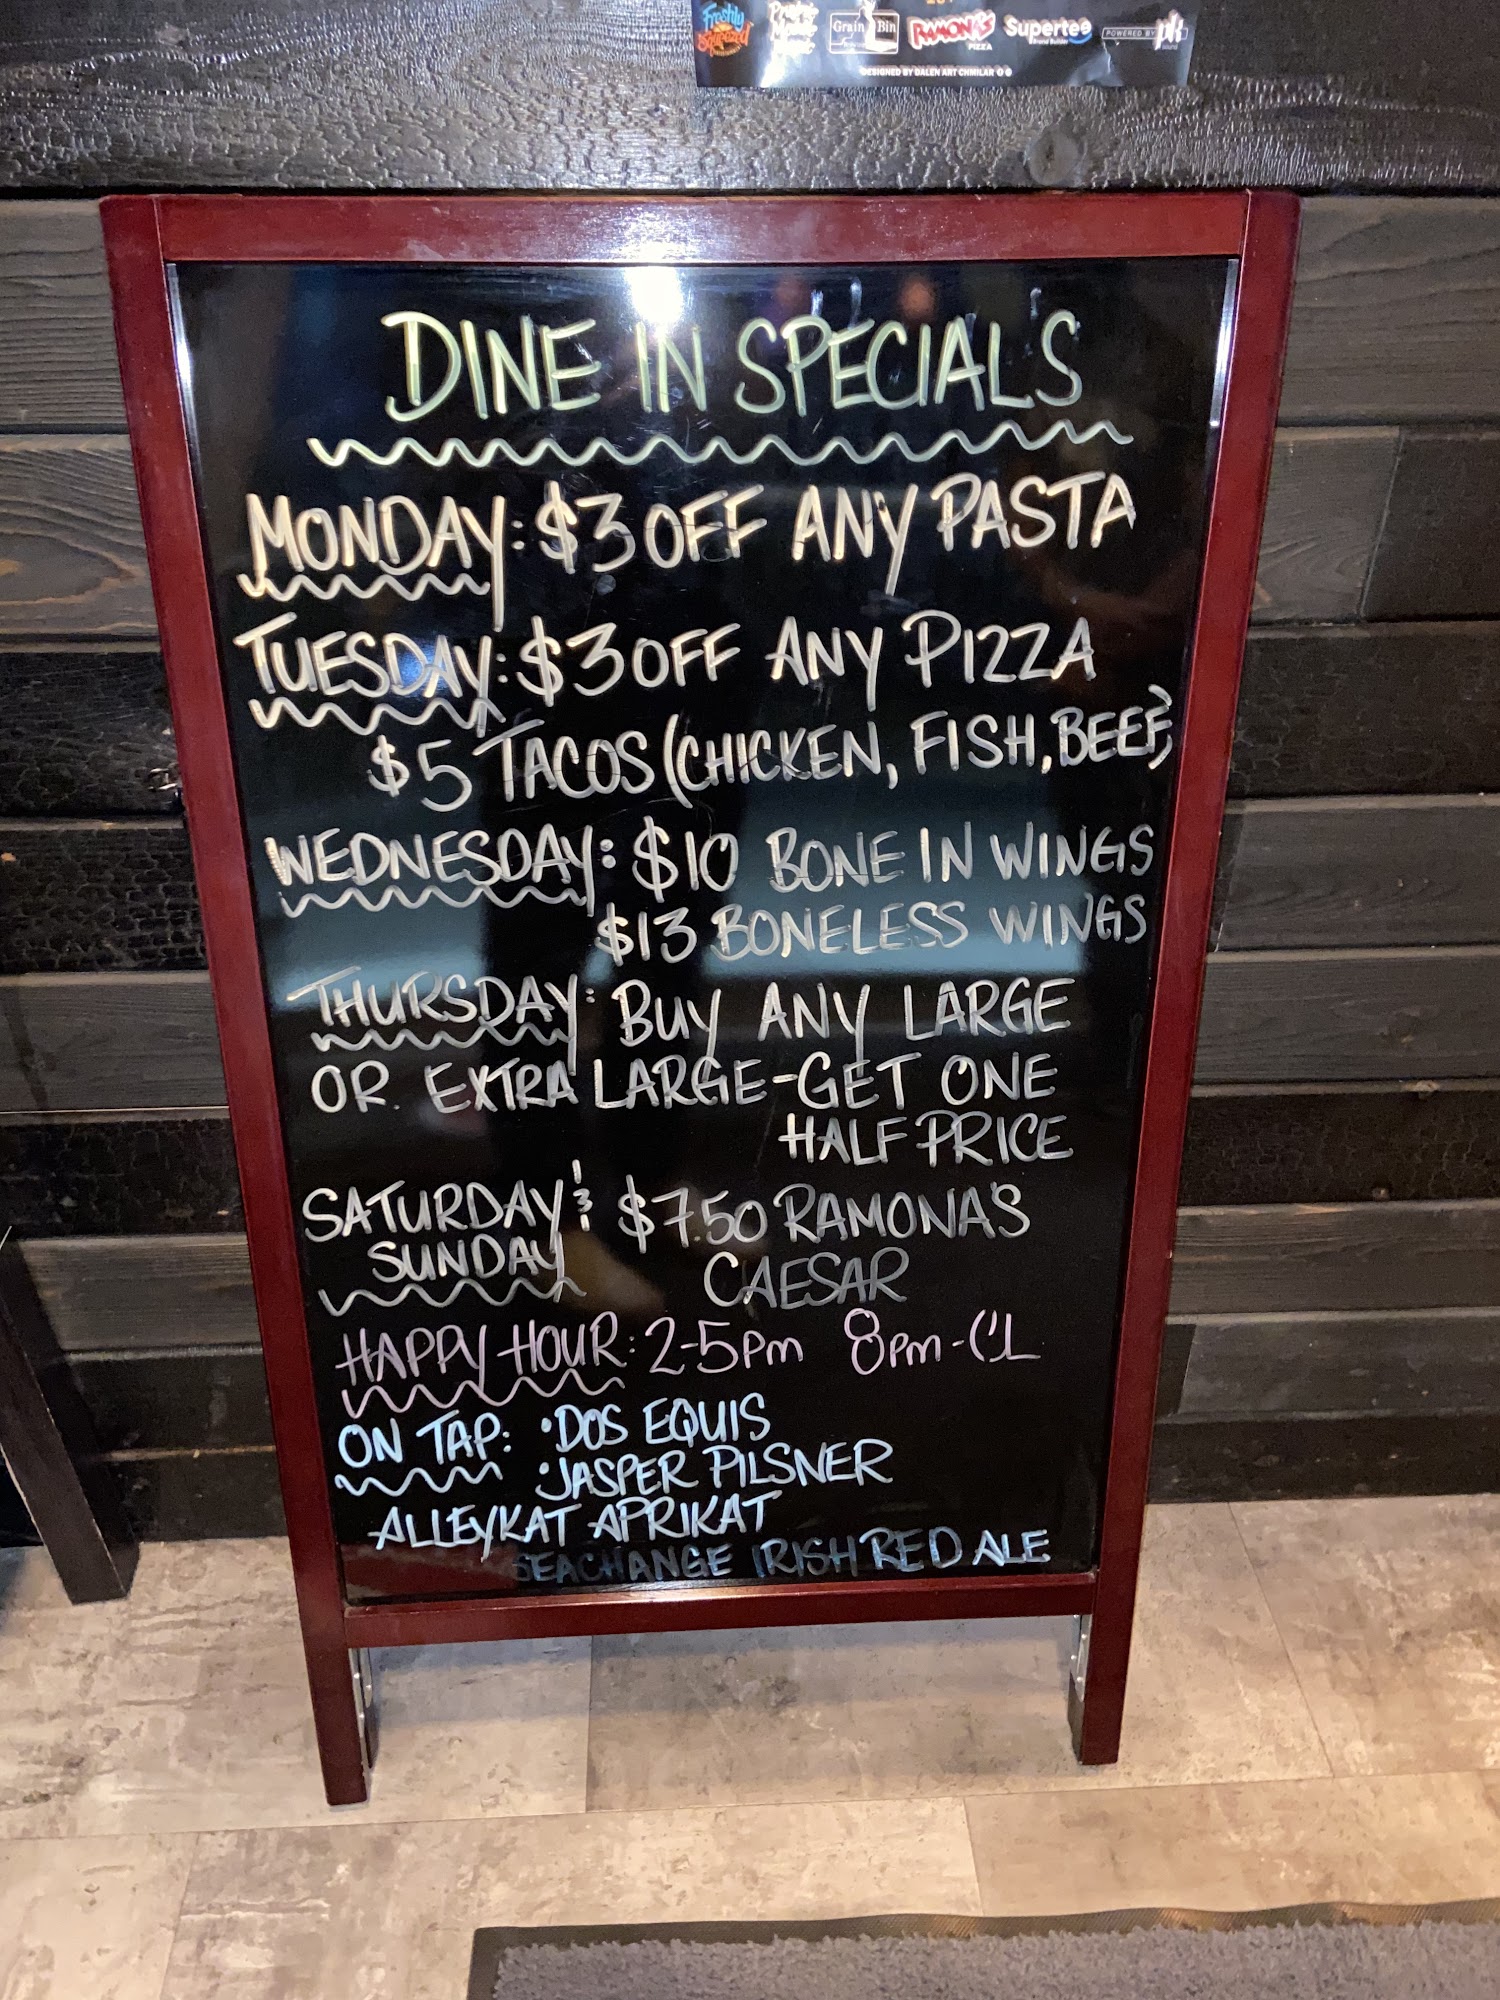 Freshly
Squeezed
Grain Bin
RAMONA'S
PIZZA
Supertee
Brand Builder
POWERED BY pk
sound
DESIGNED BY DALEN ART CHMILAR
DINE IN SPECIALS
MONDAY: $3 OFF ANY PASTA
TUESDAY: $3 OFF ANY PIZZA
$5 TACOS (CHICKEN, FISH, BEEF)
WEDNESDAY: $10 BONE IN WINGS
$13 BONELESS WINGS
THURSDAY: BUY ANY LARGE
OR EXTRA LARGE-GET ONE
HALF PRICE
SATURDAY & $7.50 RAMONA'S
SUNDAY CAESAR
HAPPY HOUR: 2-5pm 8pm-C'L
ON TAP: •DOS EQUIS
•JASPER PILSNER
ALLEYKAT APRIKAT
SEACHANGE IRISH RED ALE